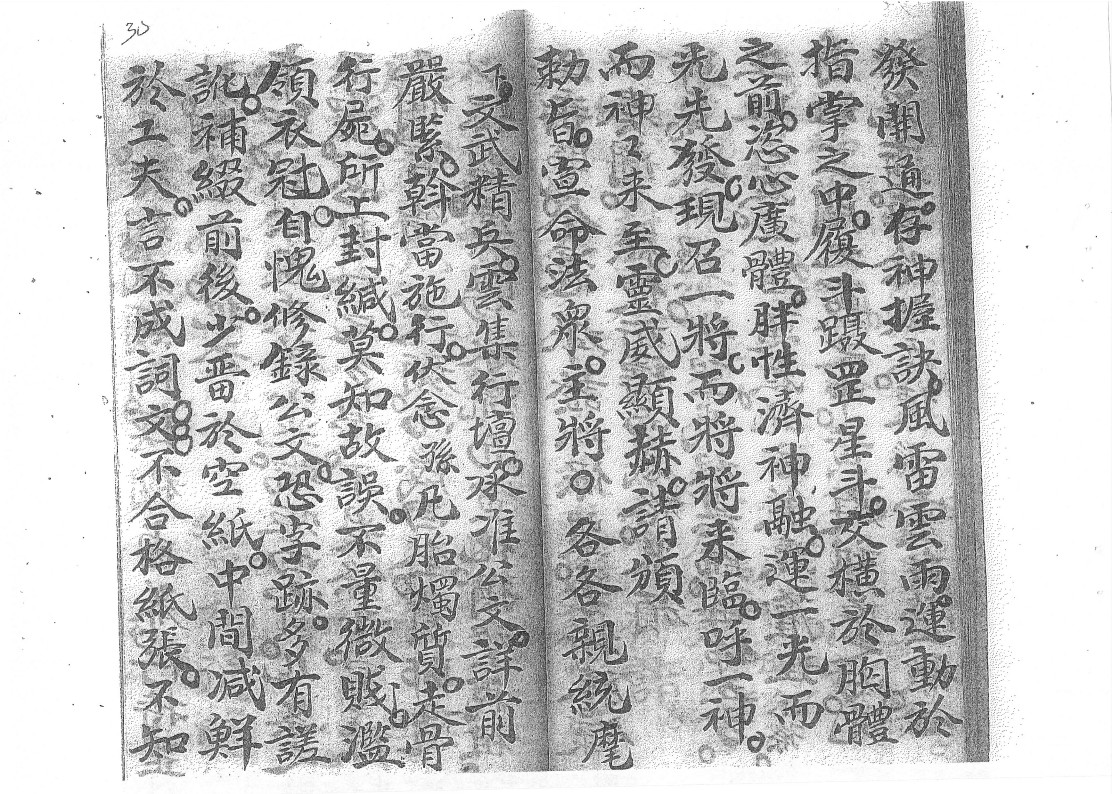 30
發開通。存神握訣。風雷雲雨。運動於
指掌之中。履斗躡罡星斗。交橫於胸體
之前。恣心廣體。胖性濟神融。運一光而
光先發現。召一將。而將將来臨。呼一神。
而神〻来至。靈威顯赫。請頒
勅旨。宣命法衆。主將。各各親統麾
下。文武精兵。雲集行壇。承准公文。詳前
嚴緊。斡當施行。伏念孫凡胎燭質。走骨
行屍。所上封緘。莫知故誤。不量微賤。濫
領衣冠。自愧修錄公文。恐字跡。多有諾
訛。補綴前後。少畨於空紙。中間减鮮
於工夫。言不成詞。文。不合格紙張。不知